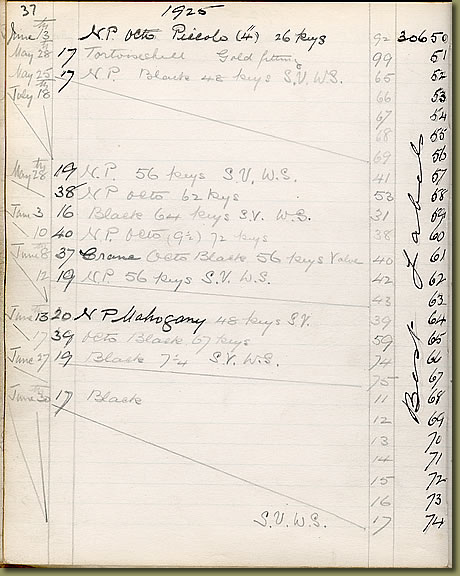 37 1925
June 13th N.P. Octo Piccolo (4") 26 keys 92 30650
May 28 17 Tortoiseshell Gold fittings 99 51
May 25 17 N.P. Black 48 keys S.V. W.S. 65 52
July 18th 66 53
67 54
68 55
69 56
May 28th 19 N.P. 56 keys S.V. W.S. 41 57
38 N.P. Octo 62 keys 53 58
June 3 16 Black 64 keys S.V. W.S. 31 59
10 40 N.P. Octo (9½) 72 keys 38 60
June 8 37 Crane Octo Black 56 keys Valve 40 61
12 19 N.P. 56 keys S.V. W.S. 42 62
43 63
June 13 20 N.P. Mahogany 48 keys S.V. 39 64
17 39 Octo Black 67 keys 59 65
June 27 19 Black 7¼ S.V. W.S. 74 66
75 67
June 30th 17 Black 11 68
12 69
13 70
14 71
15 72
16 73
S.V. W.S. 17 74
Back Labels